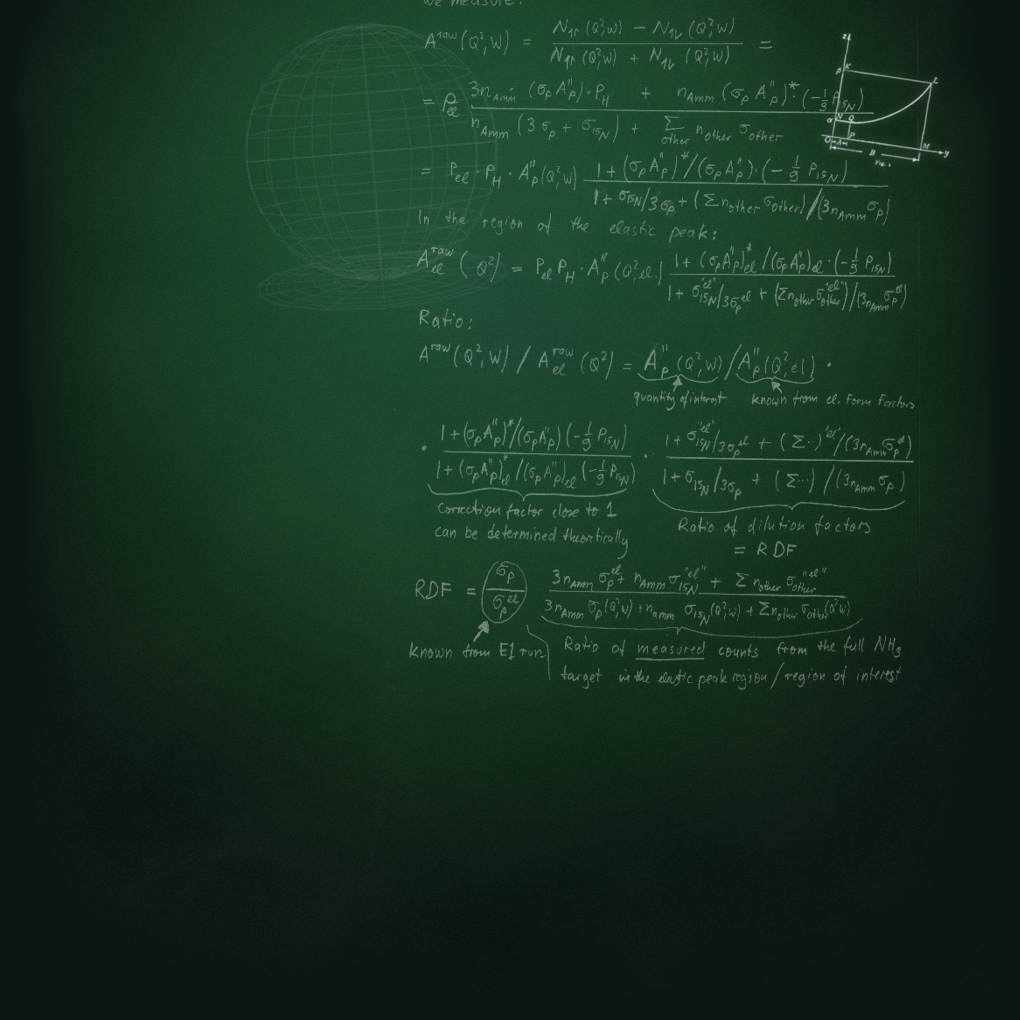 we measure:
A^raw (Q², W) = N↑↑ (Q², W) − N↑↓ (Q², W) / N↑↑ (Q², W) + N↑↓ (Q², W) =
= P_el 3n_Amm (σ_p A_p^∥)·P_H + n_Amm (σ_p A_p^∥)*·(−1/9 P_15N) / n_Amm (3σ_p + σ_15N) + Σ_other n_other σ_other
= P_el · P_H · A_p^∥ (Q², W) 1 + (σ_p A_p^∥)*/(σ_p A_p^∥)·(−1/9 P_15N) / 1 + σ_15N/3σ_p + (Σ n_other σ_other)/(3n_Amm σ_p)
In the region of the elastic peak:
A_el^raw (Q²) = P_el P_H · A_p^∥ (Q², el.) 1 + (σ_p A_p^∥)*_el/(σ_p A_p^∥)_el·(−1/9 P_15N) / 1 + σ_15N^"el"/3σ_p^el + (Σ n_other σ_other^"el")/(3n_Amm σ_p^el)
Ratio:
A^raw (Q², W) / A_el^raw (Q²) = A_p^∥ (Q², W) / A_p^∥ (Q², el) ·
quantity of interest known from el. Form Factors
· 1 + (σ_p A_p^∥)*/(σ_p A_p^∥) (−1/9 P_15N) / 1 + (σ_p A_p^∥)*_el/(σ_p A_p^∥)_el (−1/9 P_15N) · 1 + σ_15N^"el"/3σ_p^el + (Σ···)^"el"/(3n_Amm σ_p^el) / 1 + σ_15N/3σ_p + (Σ···)/(3n_Amm σ_p)
Correction factor close to 1
can be determined theoretically
Ratio of dilution factors
= RDF
RDF = σ_p / σ_p^el 3n_Amm σ_p^el + n_Amm σ_15N^"el" + Σ n_other σ_other^"el" / 3n_Amm σ_p (Q², W) + n_Amm σ_15N (Q², W) + Σ n_other σ_other (Q², W)
known from E1 run
Ratio of measured counts from the full NH₃
target in the elastic peak region / region of interest
z
K
L
N
Q
P
O
B
M
y